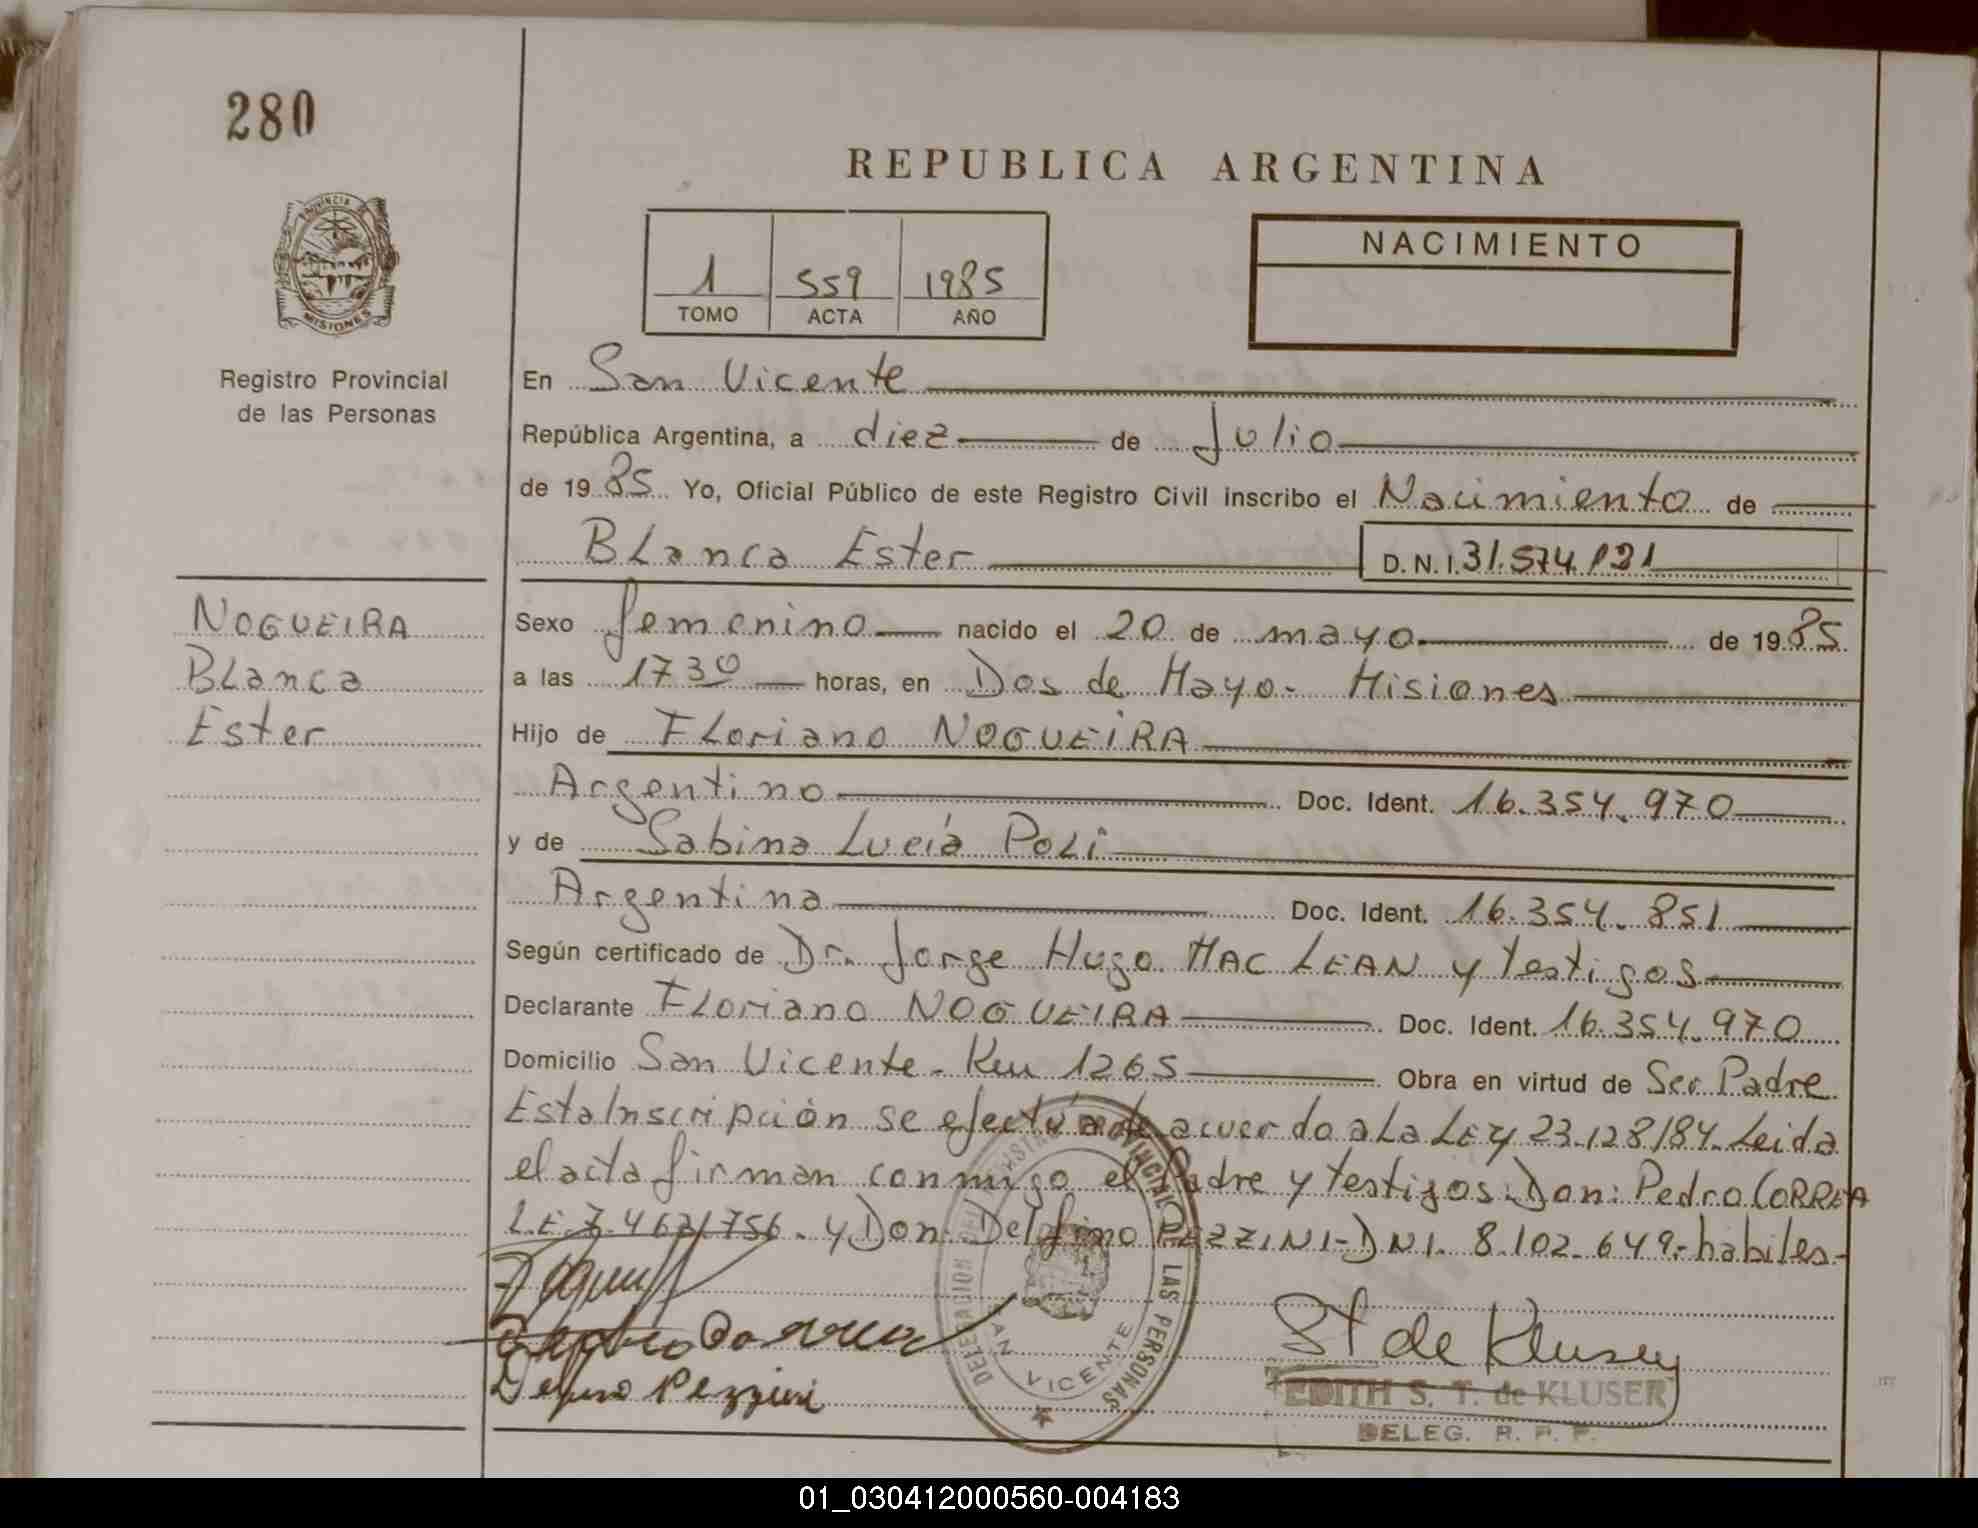 280
REPUBLICA ARGENTINA
PROVINCIA DE
MISIONES
Registro Provincial
de las Personas
1 559 1985
TOMO ACTA AÑO
NACIMIENTO
En San Vicente
República Argentina, a diez de Julio
de 1985 Yo, Oficial Público de este Registro Civil inscribo el Nacimiento de
Blanca Ester D.N.I. 31.574.121
NOGUEIRA
Blanca
Ester
Sexo femenino nacido el 20 de mayo de 1985
a las 1730 horas, en Dos de Mayo- Misiones
Hijo de Floriano NOGUEIRA
Argentino Doc. Ident. 16.354.970
y de Sabina Lucía Poli
Argentina Doc. Ident. 16.354.851
Según certificado de Dr. Jorge Hugo MAC LEAN y testigos
Declarante Floriano NOGUEIRA Doc. Ident. 16.354.970
Domicilio San Vicente- Km 1265 Obra en virtud de Ser Padre
Esta Inscripción se efectúa de acuerdo a La LEY 23.128/84. Leida
el acta firman conmigo el Padre y testigos: Don: Pedro CORREA
L.E. 7.462.756. y Don: Delfino PEZZINI- DNI. 8.102.649.- habiles-
DELEGACION DEL REGISTRO PROVINCIAL DE LAS PERSONAS
SAN VICENTE
Pedro Correa
Delfino Pezzini
St de Kluser
EDITH S. T. de KLUSER
DELEG. R. P. P.
01_030412000560-004183